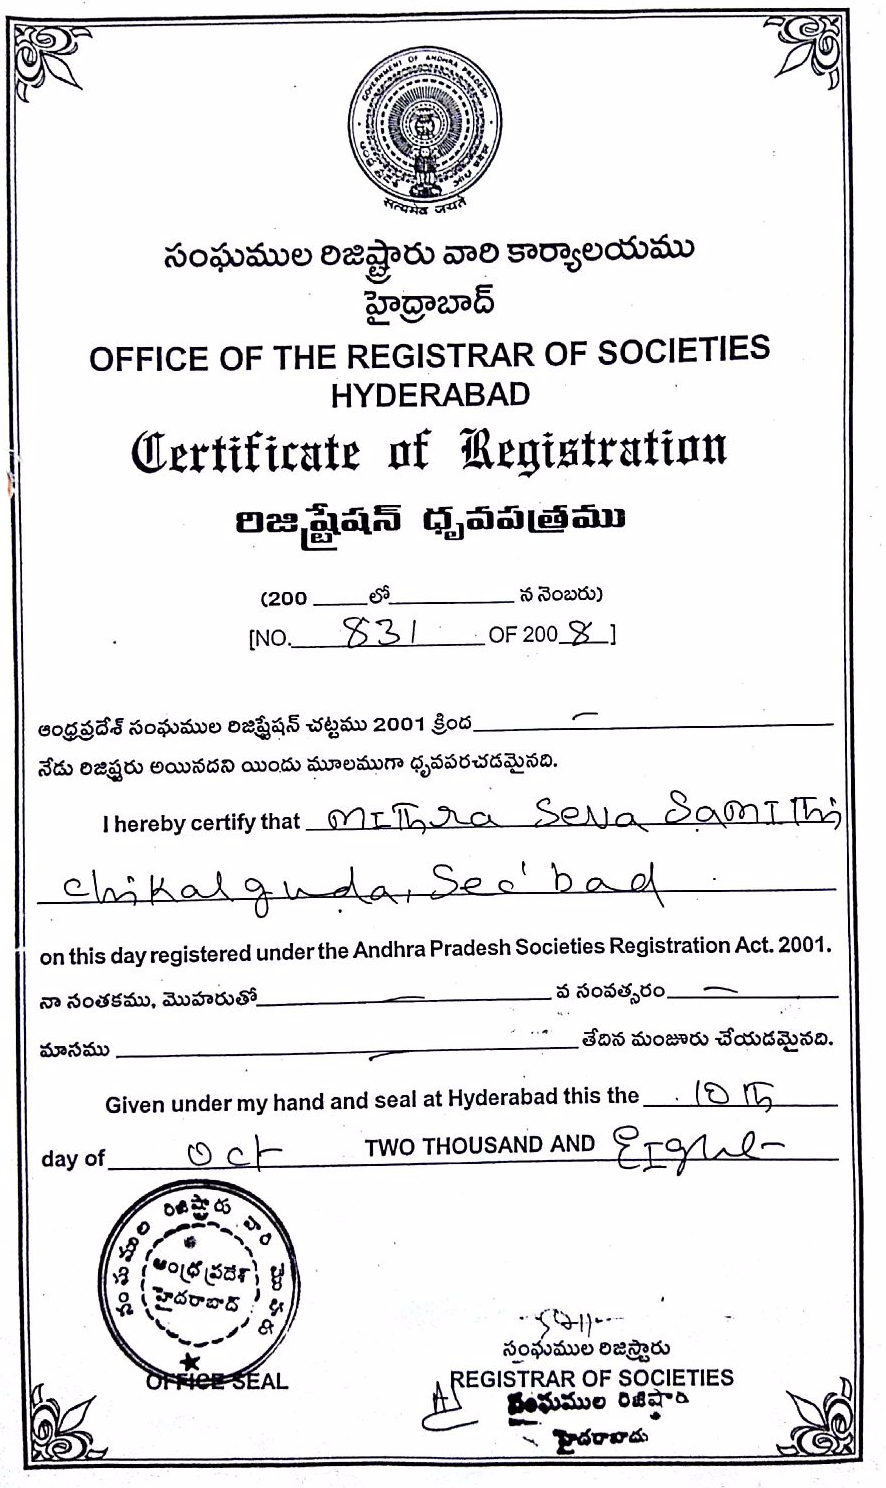 GOVERNMENT OF ANDHRA PRADESH
सत्यमेव जयते
సంఘముల రిజిష్ట్రారు వారి కార్యాలయము
హైద్రాబాద్
OFFICE OF THE REGISTRAR OF SOCIETIES
HYDERABAD
Certificate of Registration
రిజిష్ట్రేషన్ ధృవపత్రము
(200 ____లో__________ న నెంబరు)
[NO. 831 OF 200 8 ]
ఆంధ్రప్రదేశ్ సంఘముల రిజిష్ట్రేషన్ చట్టము 2001 క్రింద
నేడు రిజిష్టరు అయినదని యిందు మూలముగా ధృవపరచడమైనది.
I hereby certify that MITHra Seva SamITHi
Chikalguda, Sec'bad
on this day registered under the Andhra Pradesh Societies Registration Act. 2001.
నా సంతకము, మొహరుతో__________ వ సంవత్సరం
మాసము __________ తేదిన మంజూరు చేయడమైనది.
Given under my hand and seal at Hyderabad this the 10th
day of Oct TWO THOUSAND AND Eight
సంఘముల రిజిష్ట్రారు వారి మొహరు
ఆంధ్ర ప్రదేశ్
హైదరాబాద్
OFFICE SEAL
సంఘముల రిజిస్ట్రారు
REGISTRAR OF SOCIETIES
సంఘముల రిజిష్ట్రారు
హైదరాబాదు